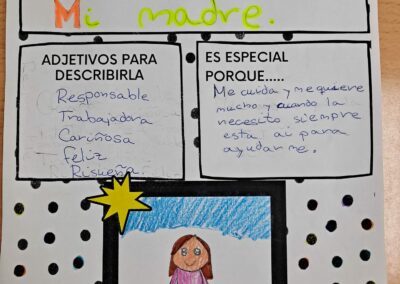 Mi madre.
ADJETIVOS PARA
DESCRIBIRLA
Responsable
Trabajadora
Cariñosa
Feliz
Risueña.
ES ESPECIAL
PORQUE.....
Me cuida y me quiere
mucho y cuando la
necesito siempre
esta ai para
ayudarme.